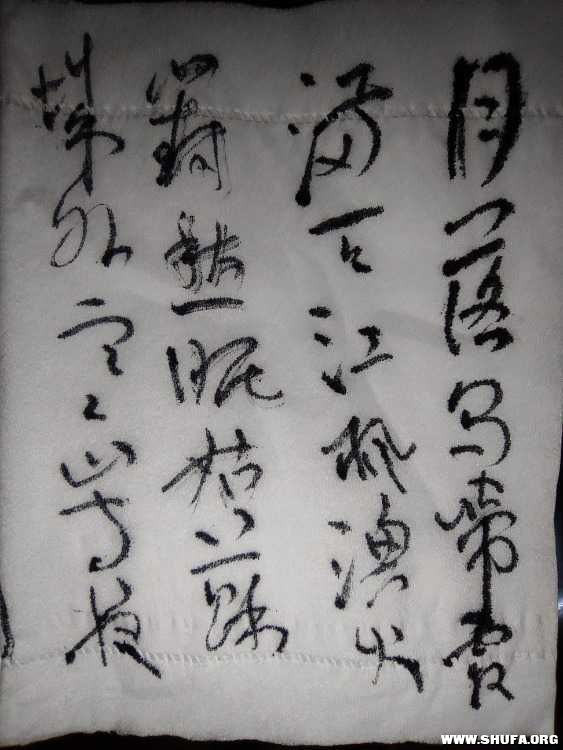 月落烏啼霜
滿天江楓漁火
對愁眠姑蘇
城外寒山寺夜
WWW.SHUFA.ORG